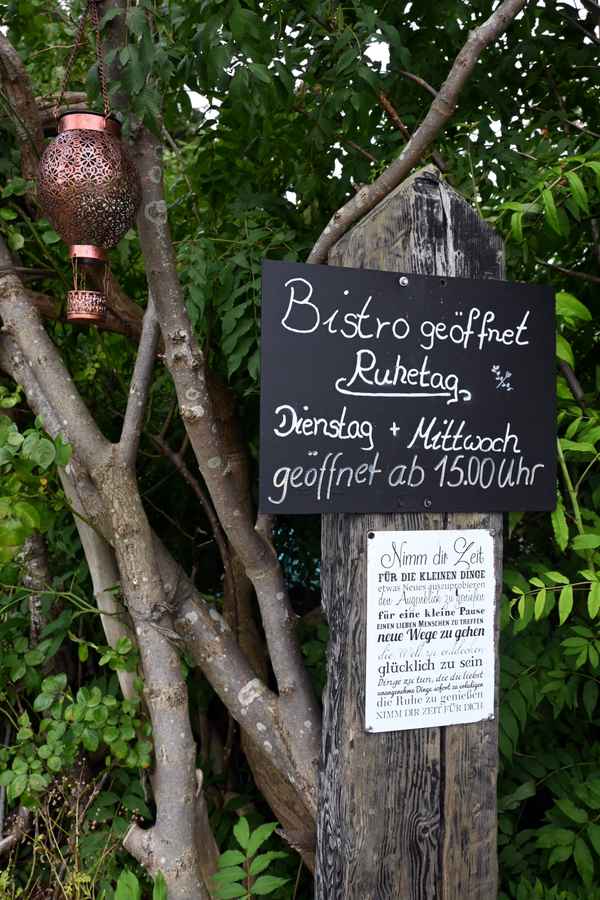 Bistro geöffnet
Ruhetag
Dienstag + Mittwoch
geöffnet ab 15.00 Uhr
Nimm dir Zeit
FÜR DIE KLEINEN DINGE
etwas Neues auszuprobieren
den Augenblick zu genießen
für eine kleine Pause
EINEN LIEBEN MENSCHEN ZU TREFFEN
neue Wege zu gehen
die Welt zu entdecken
glücklich zu sein
Dinge zu tun, die du liebst
unangenehme Dinge sofort zu erledigen
die Ruhe zu genießen
NIMM DIR ZEIT FÜR DICH